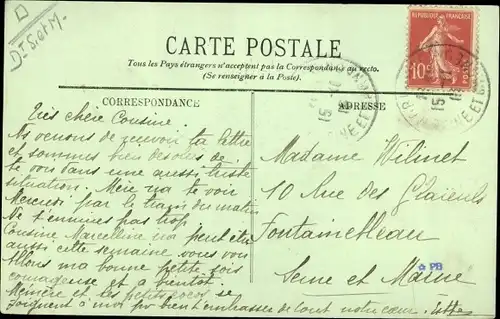 Dt S. et M.
REPUBLIQUE FRANÇAISE
10c
CARTE POSTALE
Tous les Pays étrangers n'acceptent pas la Correspondance au recto.
(Se renseigner à la Poste).
CORRESPONDANCE
ADRESSE
Très chère Cousine.
Nous venons de recevoir ta lettre
et sommes bien désolés de
te voir dans une aussi triste
situation. Mère ira te voir
Mercredi par le train du matin
Ne t'ennuies pas trop
Cousine Marcelline ira peut être
aussi cette semaine vous voir
Allons ma bonne petite sois
courageuse et à bientôt.
Mémère et les petits cocos se
joignent à moi pr bien t'embrasser de tout notre cœur.
Madame Wilinet
10 Rue des Glaieuls
Fontainebleau
Seine et Marne
PB